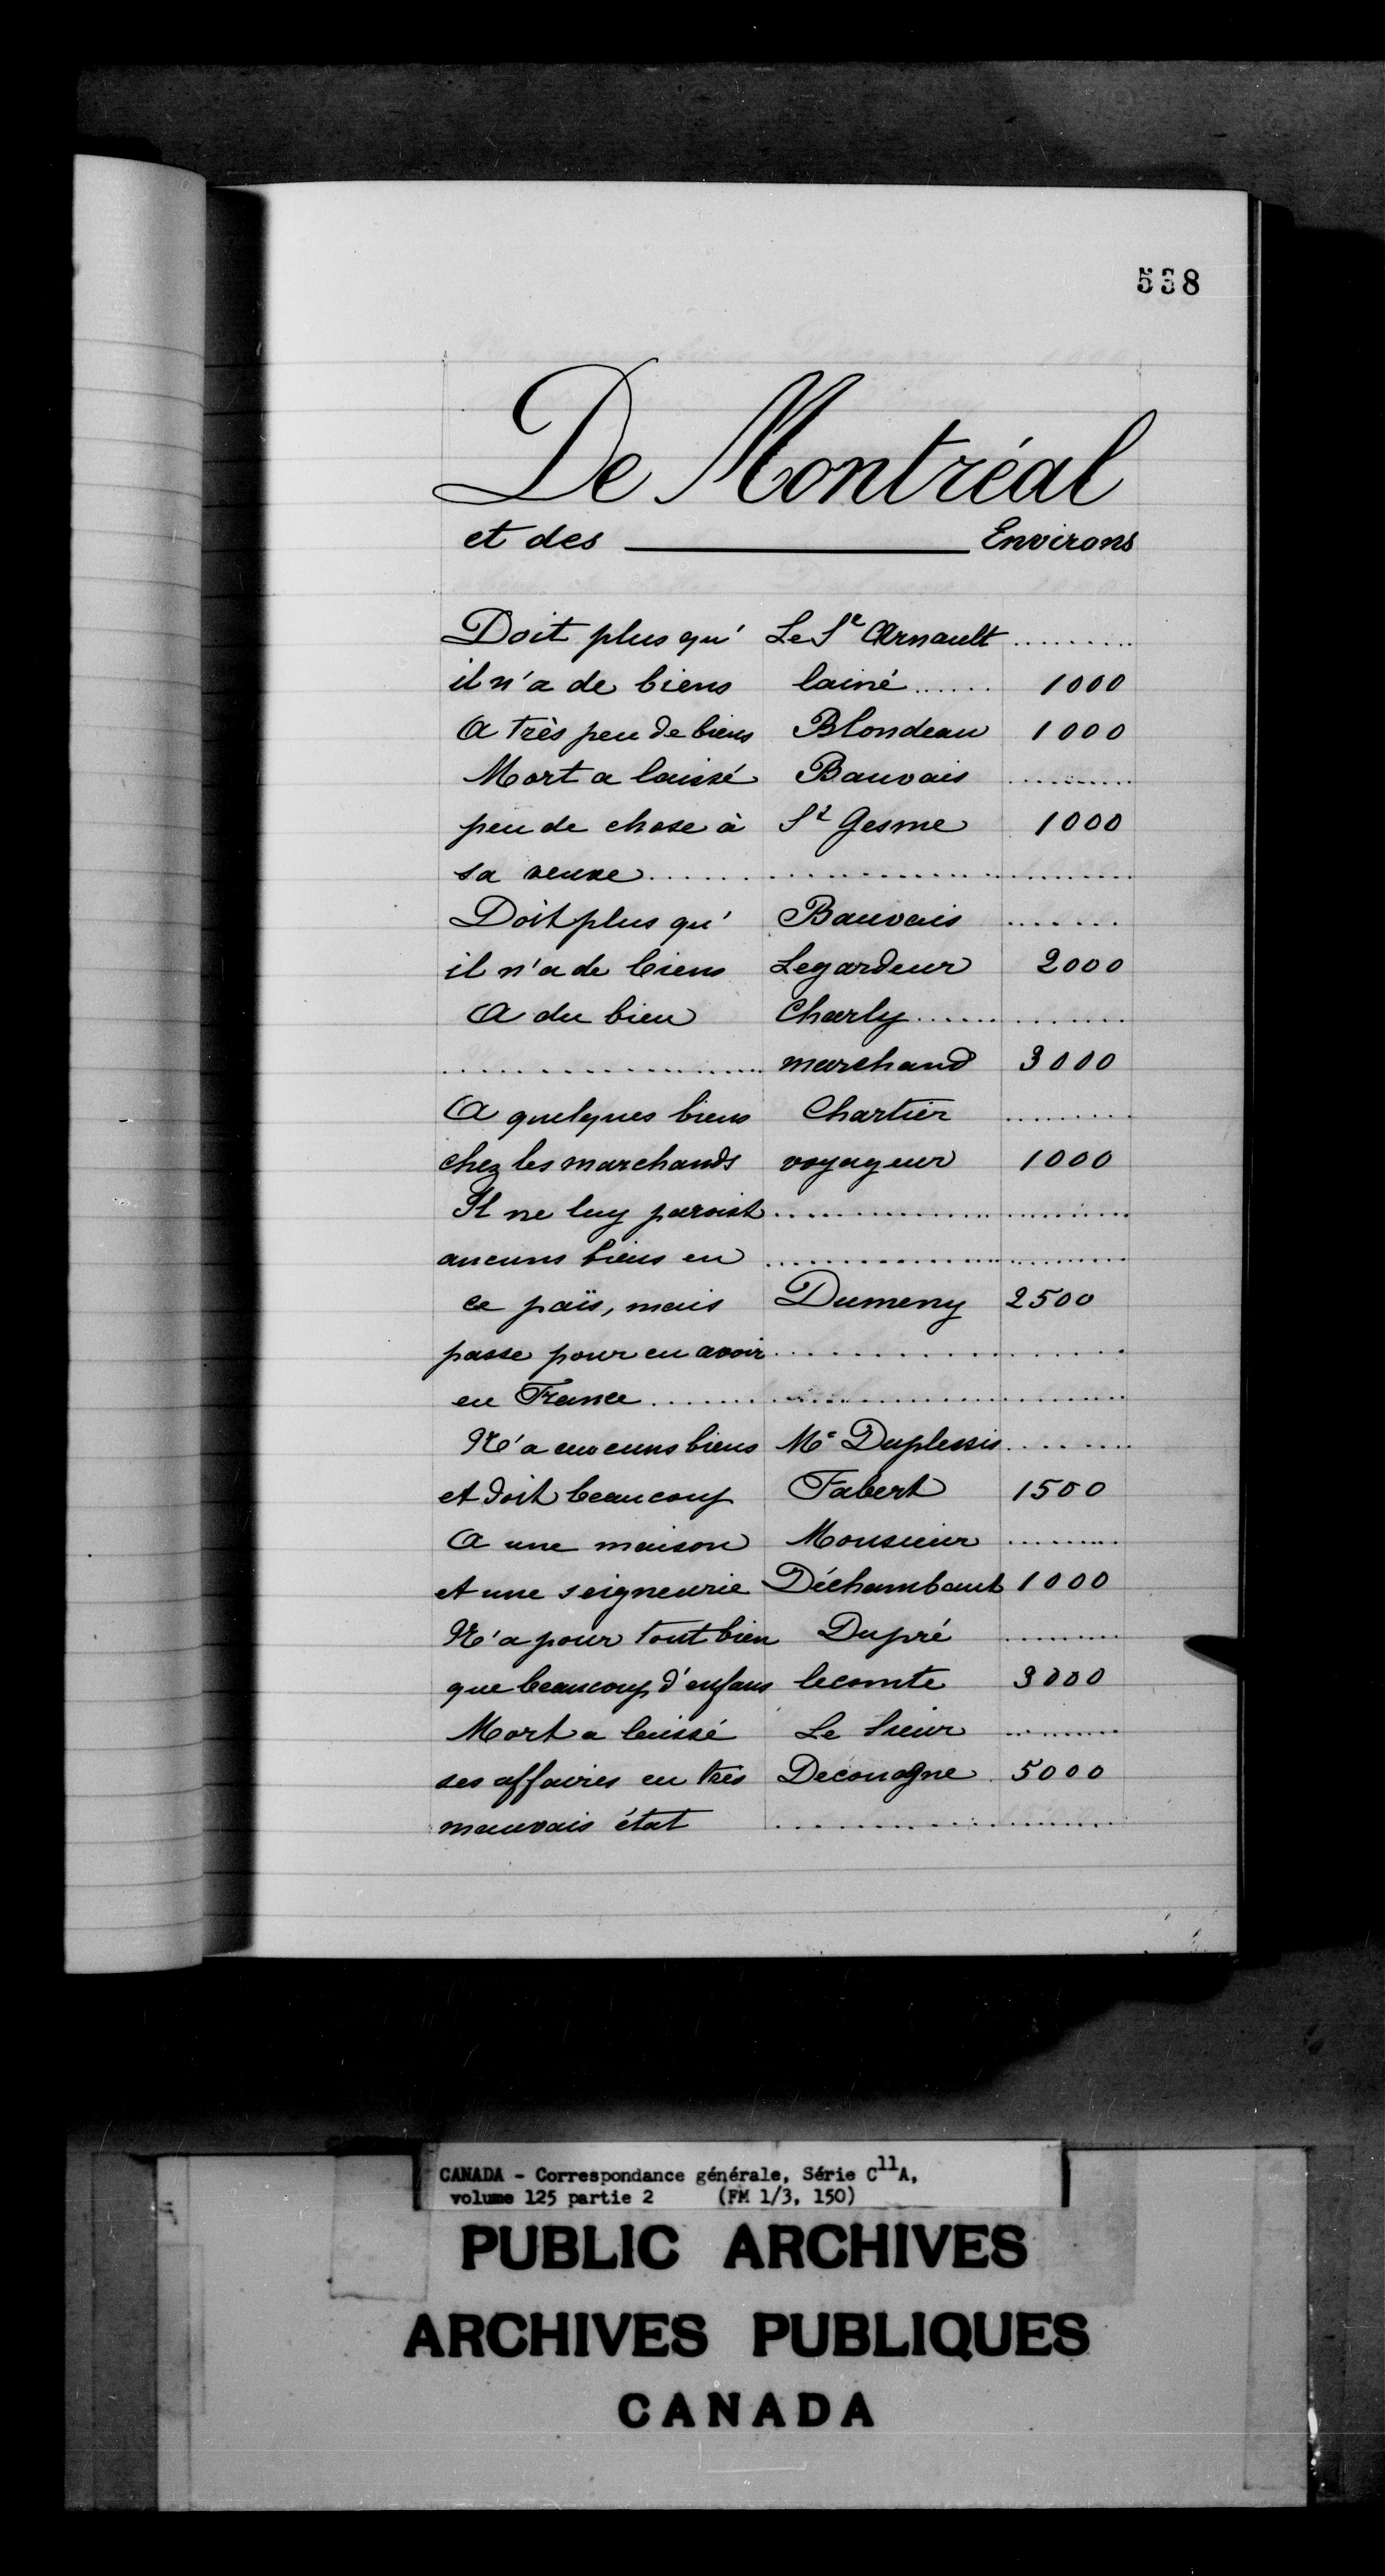 538
De Montréal
et des Environs
Doit plus qu' Le Sr Arnault ..........
il n'a de biens lainé ....... 1000
A très peu de biens Blondeau 1000
Mort a laissé Bauvais ..........
peu de chose à St Gesme 1000
sa veuve ..............................
Doit plus qu' Bauvais .......
il n'a de biens Legardeur 2000
A du bien Charly .............
.................... marchand 3000
A quelques biens Chartier .........
chez les marchands voyageur 1000
Il ne luy paroist ..........................
aucuns biens en ..........................
ce païs, mais Dumeny 2500
passe pour en avoir ....................
en France ..............................
N'a aucuns biens Mr Duplessis ........
et doit beaucoup Fabert 1500
A une maison Monsieur .........
et une seigneurie Déchambaut 1000
N'a pour tout bien Dupré .........
que beaucoup d'enfans lecomte 3000
Mort a laissé Le Sieur .........
ses affaires en très Decouagne 5000
mauvais état ....................
CANADA - Correspondance générale, Série C11A,
volume 125 partie 2 (FM 1/3, 150)
PUBLIC ARCHIVES
ARCHIVES PUBLIQUES
CANADA